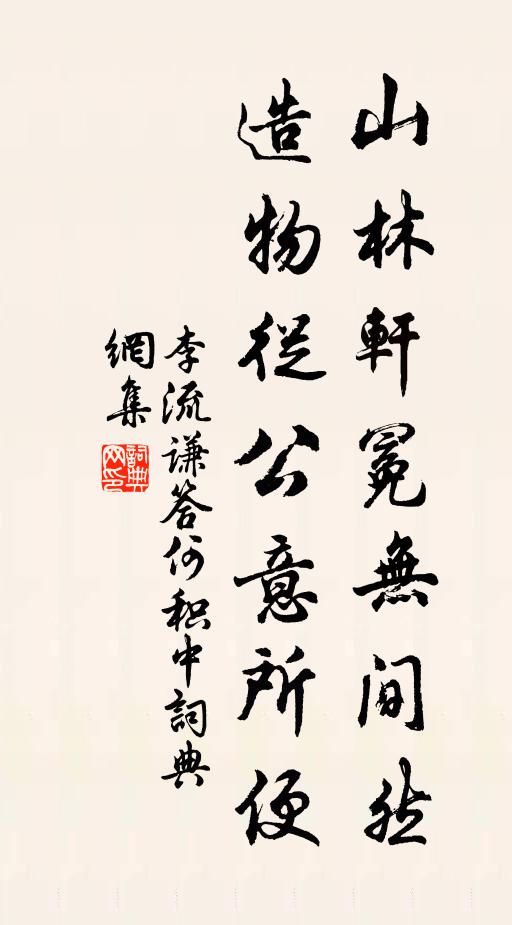 山林軒冕無间然
造物從公意所便
李流谦答何积中詞典
網集
詞典
网印